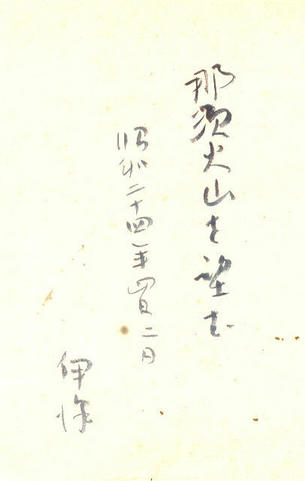 那須火山を望む
昭和二十四年四月二日